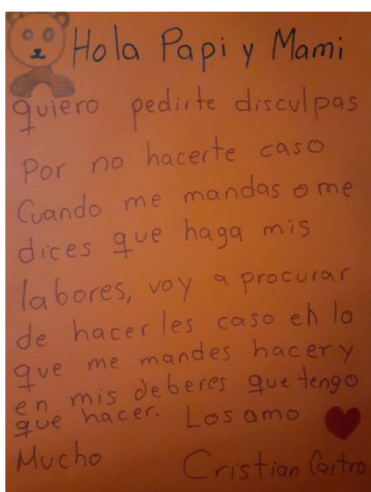 Hola Papi y Mami
quiero pedirte disculpas
Por no hacerte caso
Cuando me mandas o me
dices que haga mis
labores, voy a procurar
de hacerles caso en lo
que me mandes hacer y
en mis deberes que tengo
que hacer. Los amo
Mucho Cristian Castro